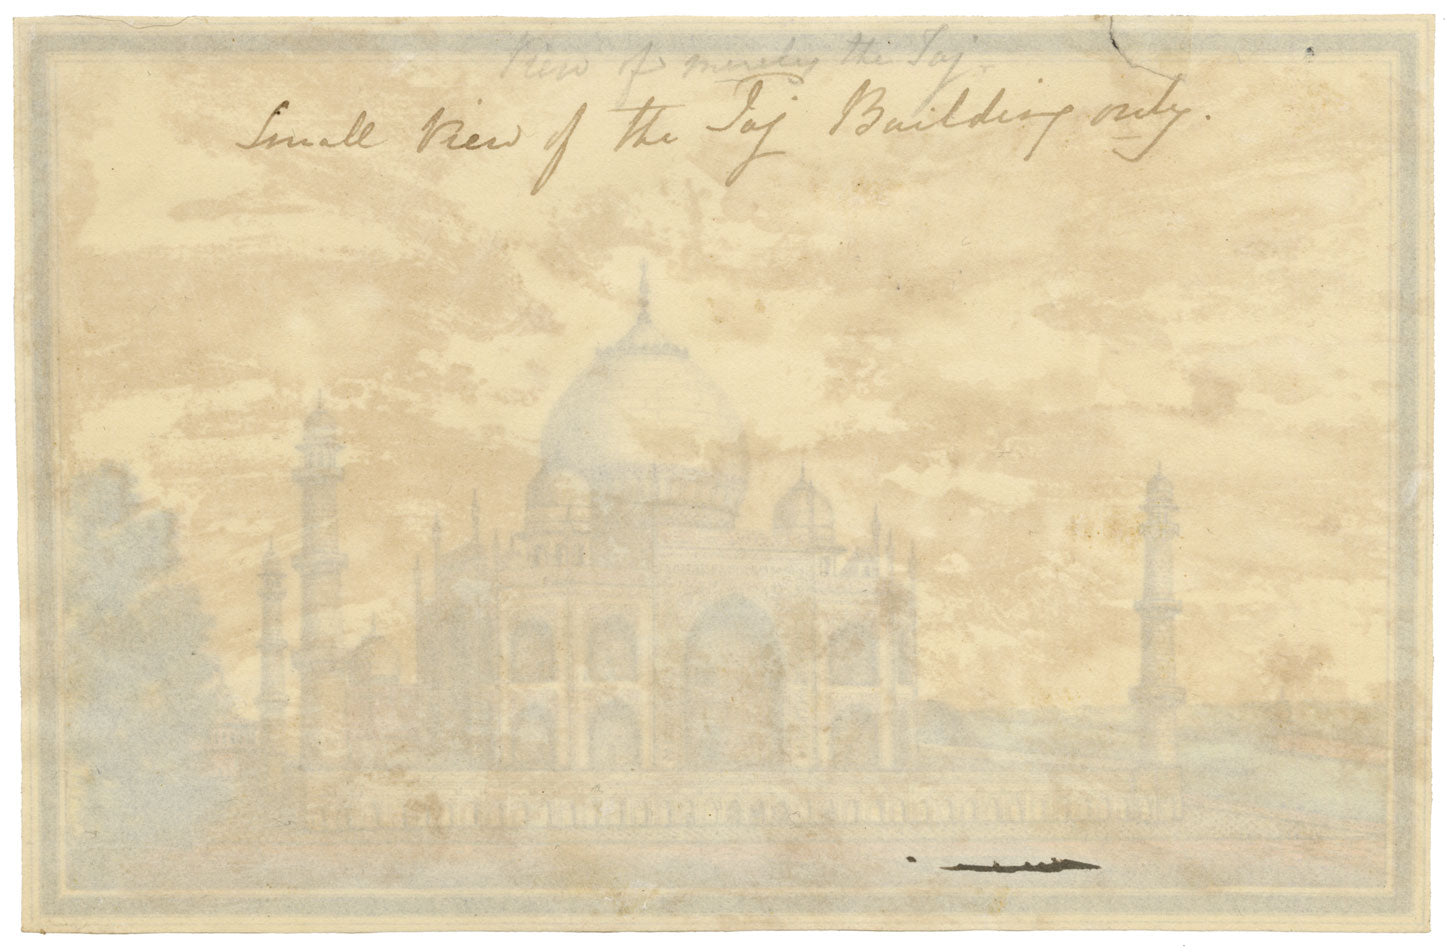 View of merely the Taj.
Small View of the Taj Building only.